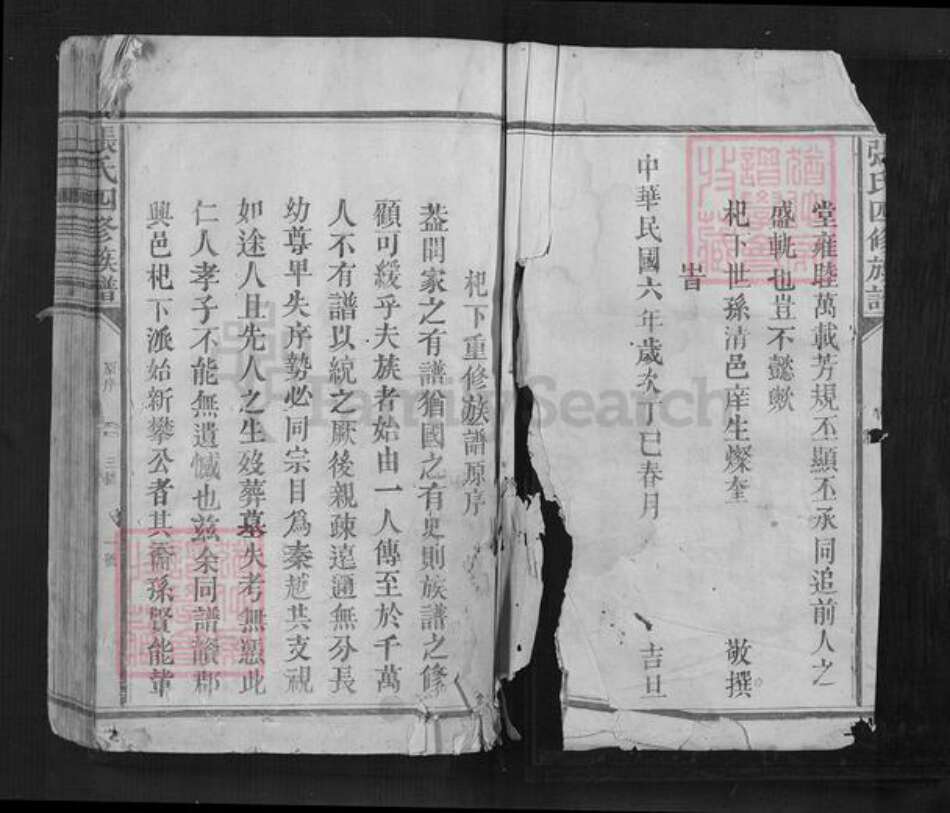 張氏四修族譜
堂雍睦萬載芳規丕顯丕承同追前人之
盛軌也豈不懿歟
杞下世孫清邑庠生燦奎 敬撰
旹
中華民國六年歲次丁巳春月 吉旦
杞下重修族譜原序
葢聞家之有譜猶國之有史則族譜之修
顧可緩乎夫族者始由一人傳至於千萬
人不有譜以統之厥後親疎遠邇無分長
幼尊卑失序勢必同宗目爲秦越其支視
如途人且先人之生歿葬墓失考無慿此
仁人孝子不能無遺憾也兹余同譜讃郡
興邑杞下派始新攀公者其裔孫賢能軰
張氏四修族譜
原序
FamilySearch